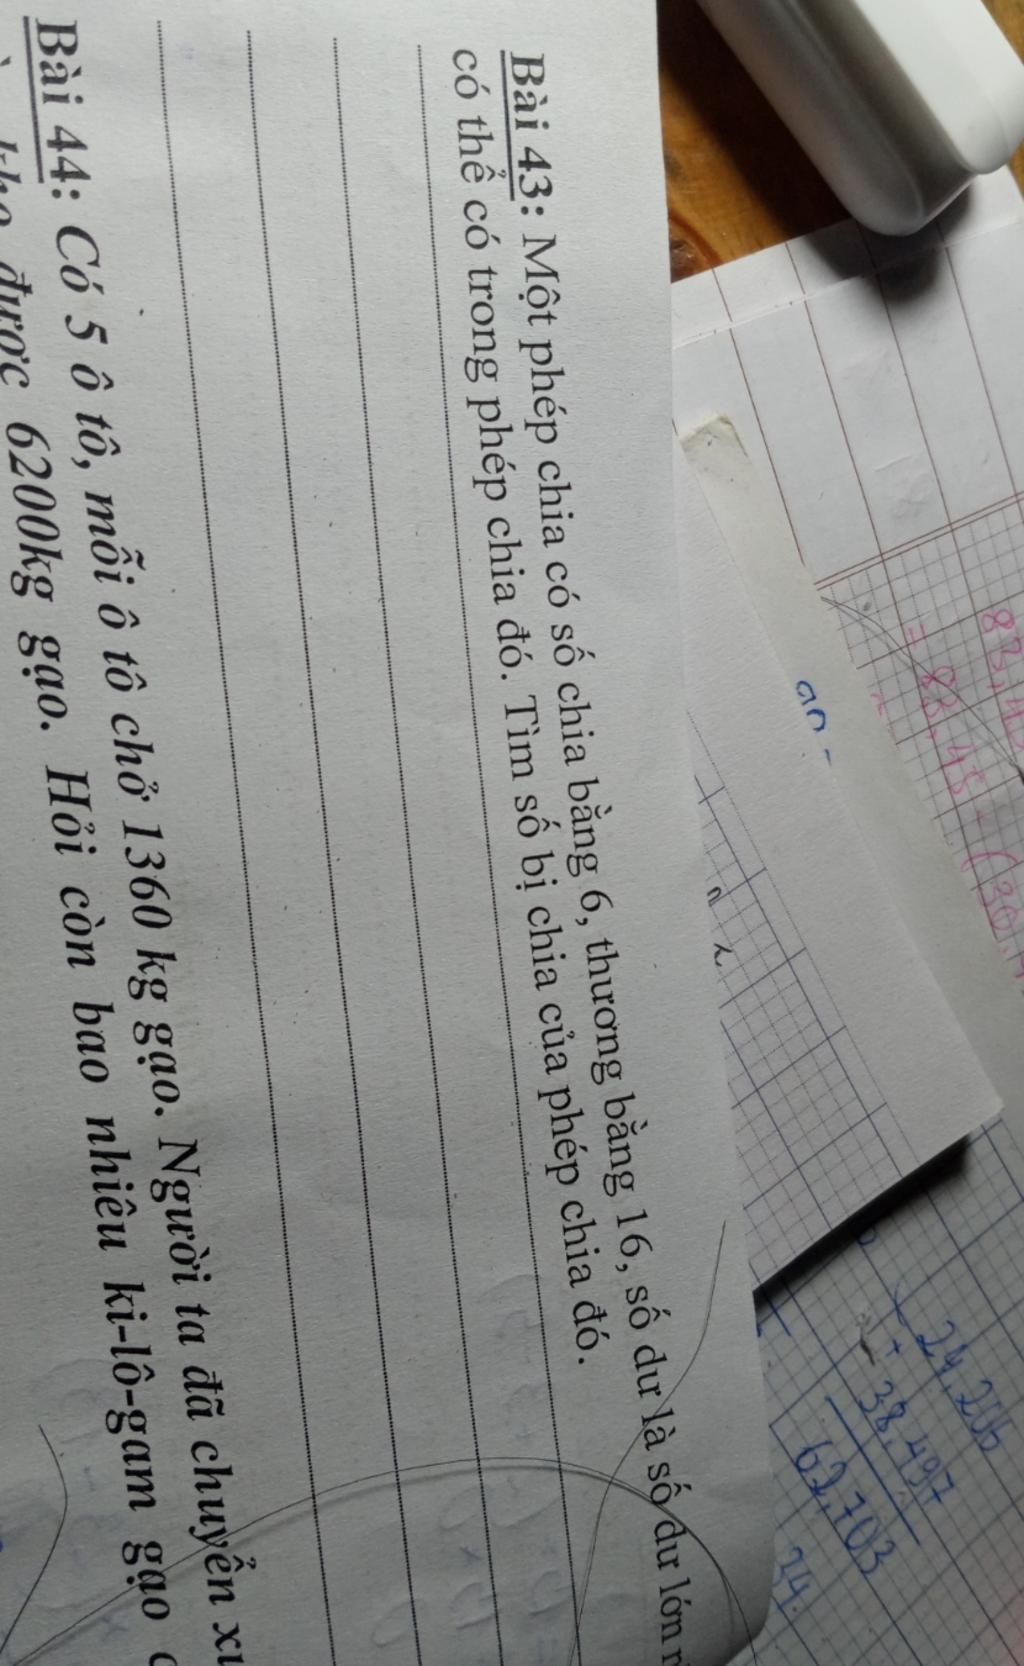 Bài 43: Một phép chia có số chia bằng 6, thương bằng 16, số dư là số dư lớn
có thể có trong phép chia đó. Tìm số bị chia của phép chia đó.
Bài 44: Có 5 ô tô, mỗi ô tô chở 1360 kg gạo. Người ta đã chuyển
được 6200kg gạo. Hỏi còn bao nhiêu ki-lô-gam gạo
an -
= 83,45 - (30,
24,206
+ 38,497
62,703
34.